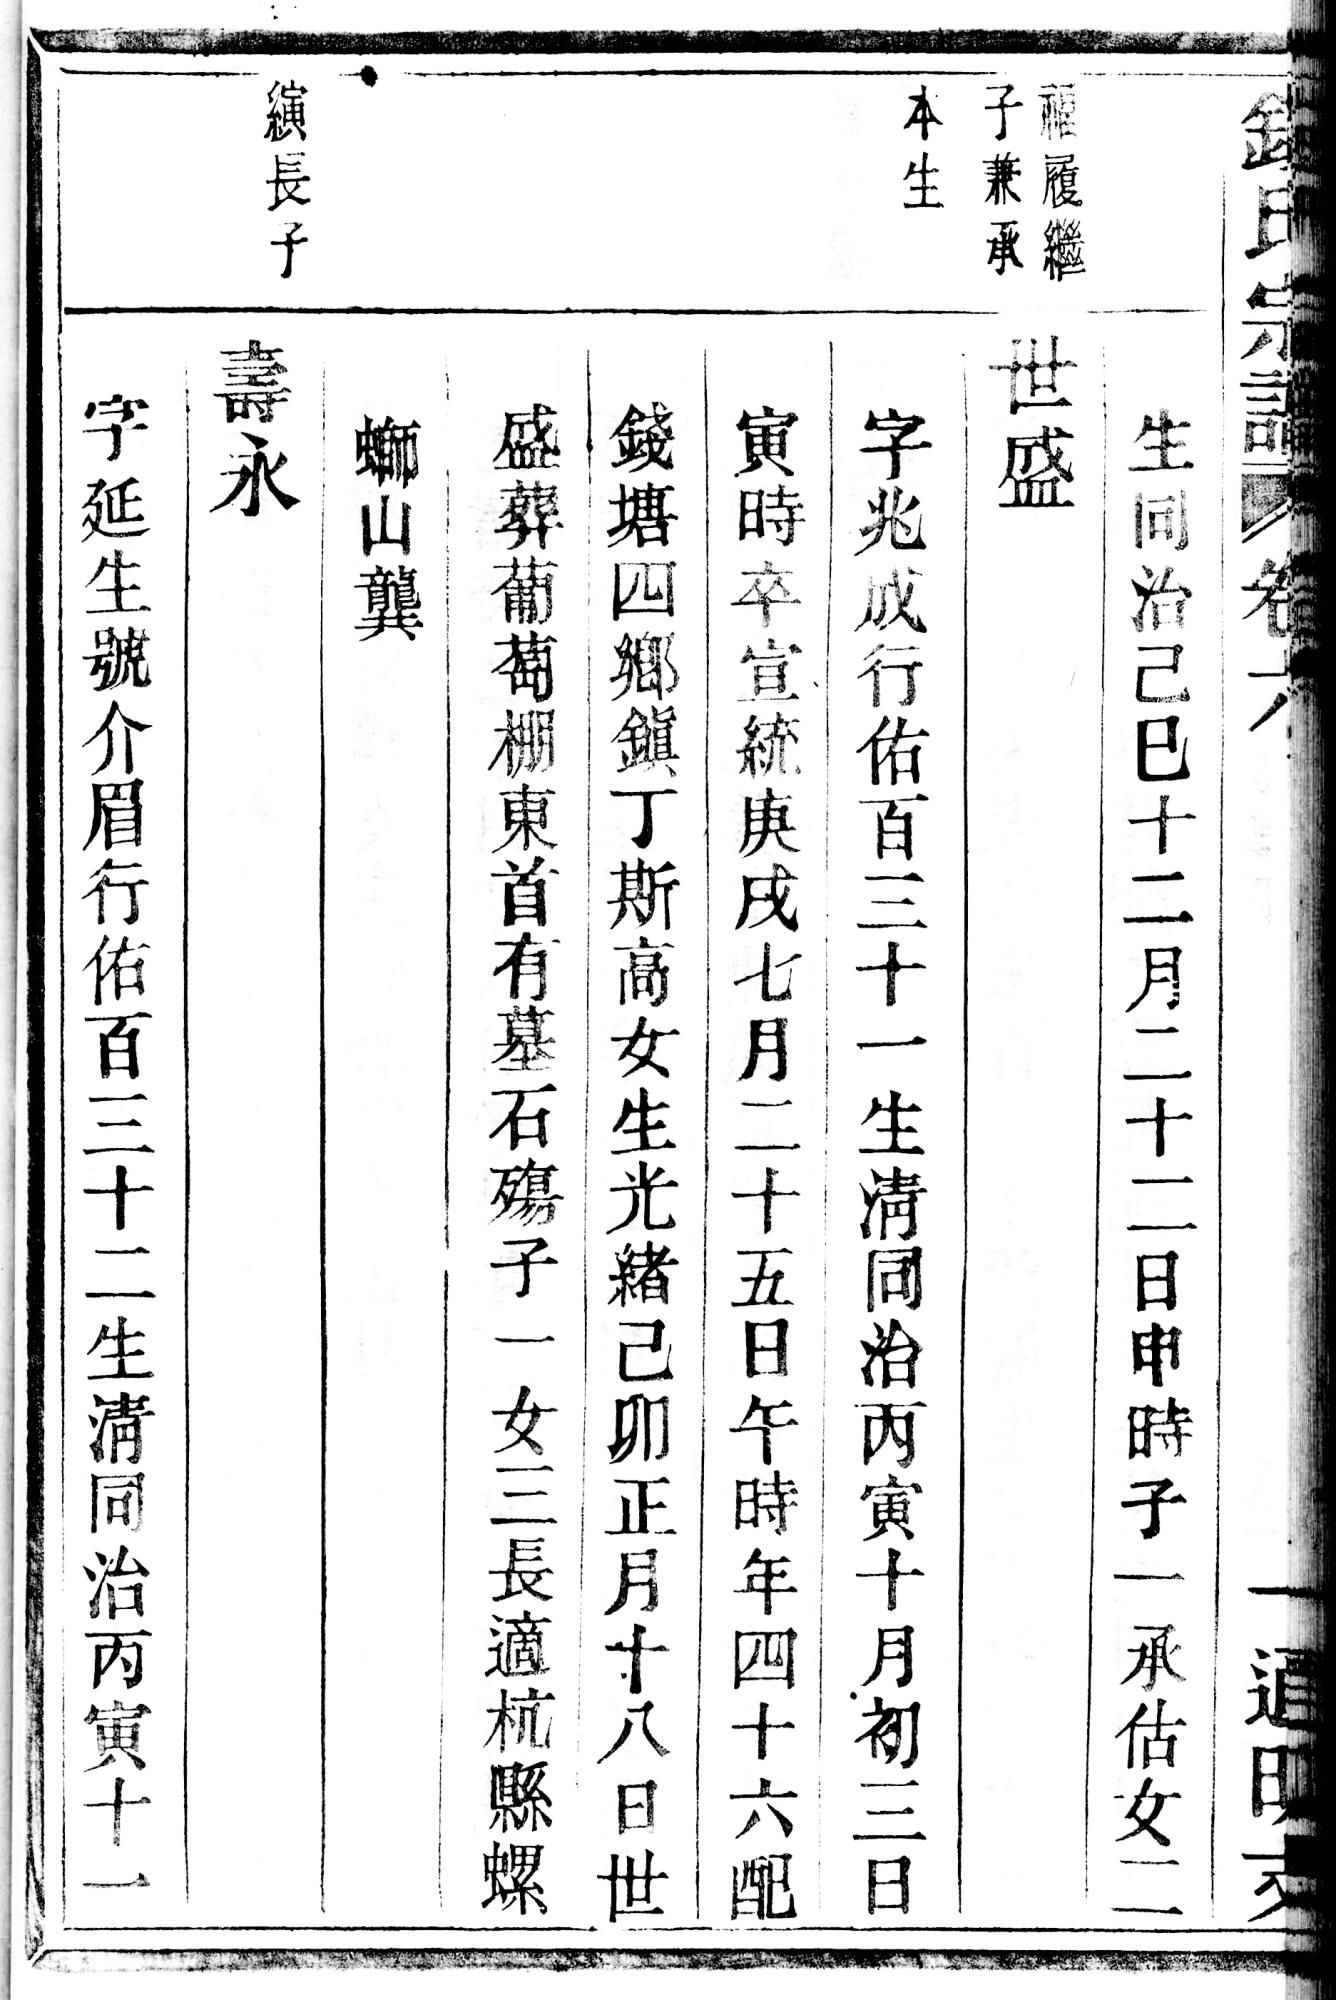 氏宗譜 卷六 一 通明支
生同治己巳十二月二十二日申時子一承估女二
福履繼
子兼承
世盛
本生
字兆成行佑百三十一生清同治丙寅十月初三日
寅時卒宣統庚戌七月二十五日午時年四十六配
錢塘四鄉鎮丁斯高女生光緒己卯正月十八日世
盛葬葡萄棚東首有墓石殤子一女三長適杭縣螺
螄山龔
縯長子
壽永
字延生號介眉行佑百三十二生清同治丙寅十一